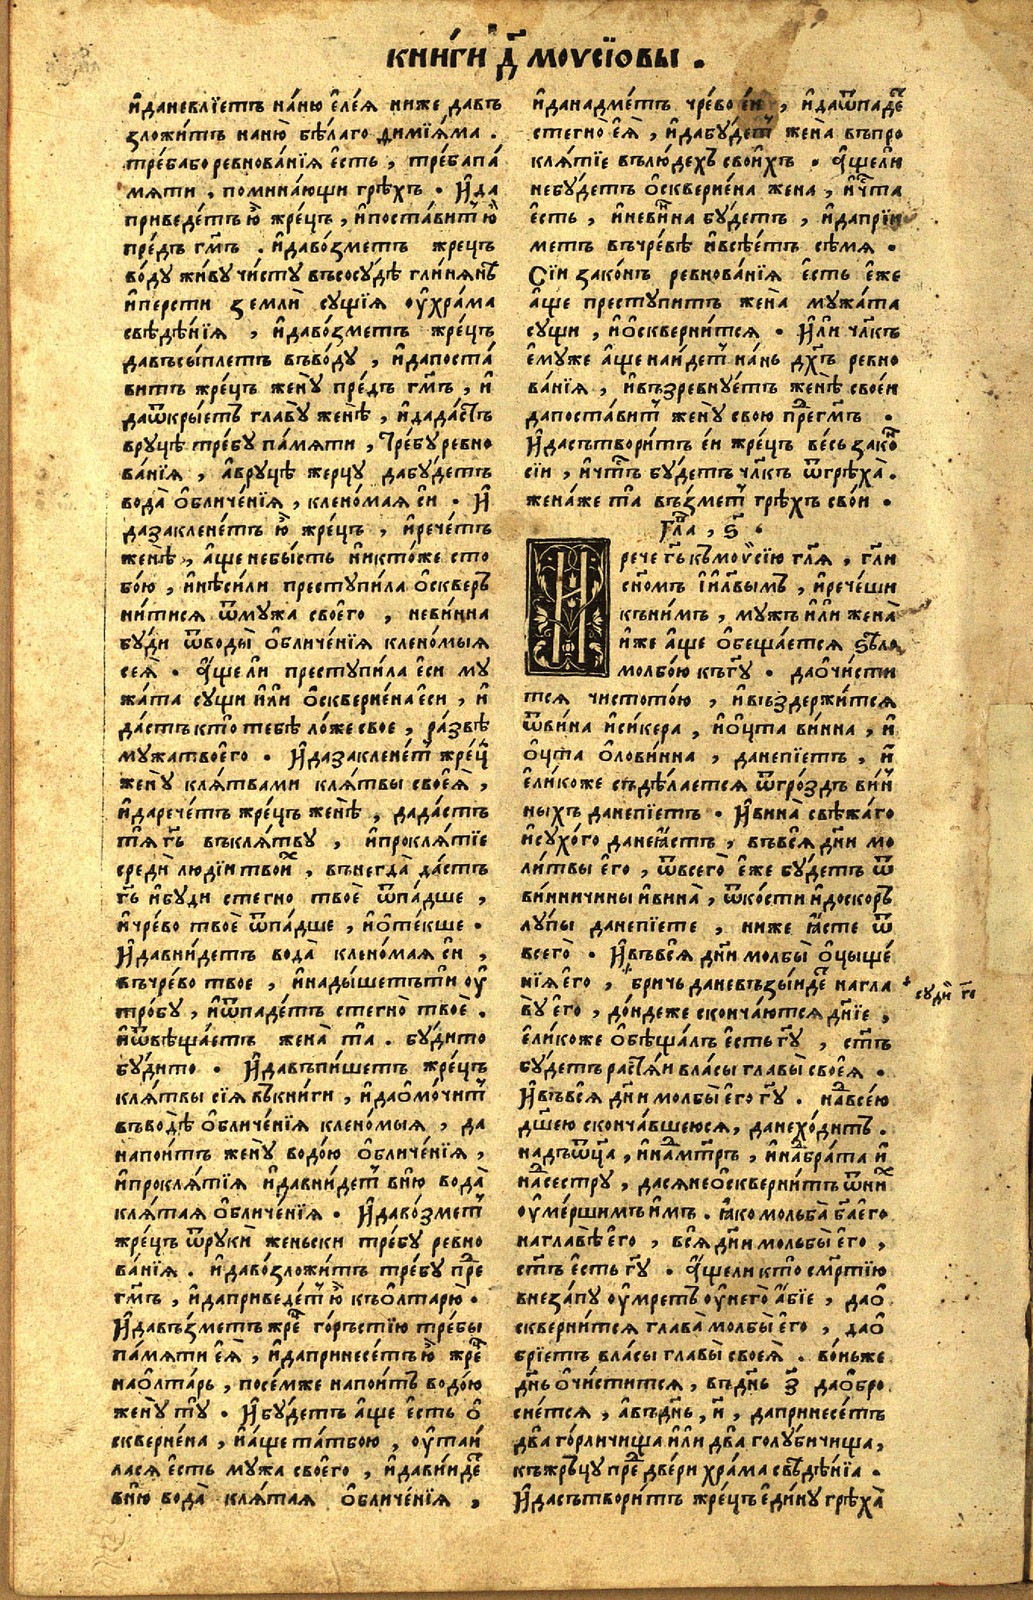 кни́ги д҃ моѵсїѡвы .
и҆даневлїетъ на́ню є҆ле́ѧ ниже давъ
ꙁложи́тъ наню̀ бѣ́лаго диміѧ́ма .
тре́бабо ревнова́нїѧ є҆сть , тре́бапа́
мѧти . помина́ющи грѣхъ . И҆да
приведе́тъ ю҆̀ жре́цъ , и҆поста́витⷮ ю҆̀
пре́дъ гмⷭ҇ъ . и҆даво́ꙁметъ жрецъ
во́ду жи́ву чи́сту въсосу́дѣ гли́нѧнѣ
и҆пе́рсти ꙁемлѝ су́щїѧ оу҆хра́ма
свѣде́нїѧ , и҆даво́ꙁметъ жре́цъ
давъсы́плетъ въво́ду , и҆дапоста́
витъ жре́цъ жену̀ пре́дъ гмⷭ҇ъ , и҆
даѿкры́етъ главу̀ же́нѣ , и҆дада́стъ
вруцѣ тре́бу па́мѧти , тре́бу ревно
ва́нїѧ , а҆вруцѣ жерцу̀ дабу́детъ
вода̀ ѡ҆бличе́нїѧ , клено́маѧ сѝ . И҆
даꙁаклене́тъ ю҆̀ жре́цъ , и҆рече́тъ
женѣ̀ , а҆́ще небы́сть никто́же сто
бо́ю , и҆нѣ́сили преступи́ла ѡ҆сквер
ни́тисѧ ѿмужа своего̀ , невинна
бу́ди ѿводы̀ ѡ҆бличе́нїѧ клено́мыѧ
сеѧ̀ . А҆́щели преступи́ла є҆си му
жа́та сущи и҆ли ѡ҆скверне́на є҆си , и҆
да́стъ кто̀ тебѣ̀ ло́же своѐ , ра́ꙁвѣ
мужа твоего̀ . И҆даꙁаклене́тⷮ жре́цⷪ
жену̀ клѧ́твами клѧ́твы своеѧ̀ ,
и҆дарече́тъ жре́цъ женѣ̀ , дада́стъ
тѧ̀ гь҃ въклѧ́тву , и҆проклѧ́тїе
средѝ люді́и твои́хⷯ , вънегда̀ да́стъ
гь҃ и҆буди стегно̀ твоѐ ѿпа́дше ,
и҆чре́во твоѐ ѿпа́дше , и҆ѡ҆те́кше .
И҆дави́детъ вода̀ клено́маѧ сѝ ,
въчре́во твое , и҆нады́шетъти оу҆
тро́бу , и҆ѿпаде́тъ стегно̀ твоѐ .
и҆ѿвѣща́етъ жена̀ та̀ . бу́дито
бу́дито . И҆давъпи́шетъ жре́цъ
клѧ́твы сїѧ въкни́ги , и҆даѡ҆мочи́тⷮ
въводѣ̀ ѡ҆бличе́нїѧ клено́мыѧ , да
напои́тъ жену̀ водо́ю ѡ҆бличе́нїѧ ,
и҆проклѧ́тїѧ и҆давни́детⷮ вню̀ вода̀
клѧ́таѧ ѡ҆бличе́нїѧ . И҆даво́ꙁметⷮ
жре́цъ ѿрукѝ женьски тре́бу ревно
ва́нїѧ . и҆даво́ꙁложи́тъ тре́бу преⷣ
гмⷭ҇ъ , и҆даприведе́тⷮ ю҆̀ къѡ҆лтарю̀ .
И҆давъꙁметъ жреⷰ го́рьстїю тре́бы
па́мѧти є҆ѧ̀ , и҆даприне́сетъ ю҆̀ жреⷰ
наѡ҆лта́рь , посе́мже напои́тъ водо́ю
жену̀ ту̀ . И҆бу́детъ а҆ще є҆сть ѡ҆
скверне́на , и҆а҆ще та́тбою , оу҆таи́
ласѧ є҆сть мужа своего̀ , и҆давни́деⷮ
вню̀ вода̀ клѧ́таѧ ѡ҆бличе́нїѧ ,
и҆данадме́тъ чре́во є҆ѝ , и҆даѿпаде́ⷮ
стегно̀ є҆ѧ̀ , и҆дабу́детⷮ жена̀ въпро
клѧ́тїе влю́дехъ свои́хъ . А҆́щели
небу́детъ ѡ҆скверне́на жена , и҆чⷭ҇та
є҆сть , и҆неви́нна бу́детъ , и҆дапрїи́
метъ въчре́вѣ и҆всѣ́етъ сѣ́мѧ .
Сїи ꙁако́нъ ревнова́нїѧ є҆сть є҆́же
а҆ще престу́питъ жена̀ мужа́та
сущи , и҆ѡ҆скверни́тсѧ . И҆ли чл҃къ
є҆му́же а҆ще наи́детⷮ на́нь дх҃ъ ревно
ва́нїѧ , и҆въꙁревнуе́тъ женѣ̀ свое́и
дапоста́витⷮ жену̀ свою преⷣгмⷭ҇ъ .
И҆дасътвори́тъ є҆и жре́цъ ве́сь ꙁакоⷩ
сїи , и҆чⷭ҇тъ бу́детъ чл҃къ ѿгрѣха̀ .
жена́же та̀ въꙁметⷮ грѣхъ сво́и .
Гла̀в , ѕ҃ .
И рече гь҃ къмоѵ̈сїю гл҃ѧ , гл҃и
сн҃омъ і҆и҃лвымъ , и҆рече́ши
кънимъ , мужъ и҆ли жена̀
и҆же а҆ще ѡ҆бещае́тсѧ ѕѣло
молбо́ю къгу҃ . даѡ҆чи́сти
тсѧ чистото́ю , и҆въꙁдержи́тсѧ
ѿвина̀ и҆си́кера , и҆ѻ҆цта ви́нна , и҆
ѻ҆цта ѻ҆лови́нна , данепїе́тъ , и҆
є҆ли́коже съдѣ́лаетсѧ ѿгро́ꙁдъ ви́н
ныхъ данепїе́тъ . И҆вина̀ свѣ́жаго
и҆сухо́го данеꙗ҆́стъ , въвсѧ̀ дн҃и мо
ли́твы є҆го , ѿвсего̀ є҆же бу́детъ ѿ
винничины и҆вина̀ , ѿко́сти и҆доскор
лу́пы данепїете , ниже ꙗ҆́сте ѿ
всего̀ . И҆въвсѧ̀ дн҃и молбы̀ ѡ҆цыще́
нїѧ є҆го , бри́чь даневъꙁы́деⷮ нагла
ву̀ є҆го , до́ндеже сконча́ютсѧ дн҃їе ,
є҆ли́коже ѡ҆бѣща́лъ є҆сть гу҃ , ст҃ъ
бу́детъ растѧ́и вла́сы главы̀ своеѧ̀ .
И҆въвсѧ̀ дн҃и молбы̀ є҆го гу҃ . наⷣвсе́ю
дш҃ею сконча́вшеюсѧ , данехо́дитъ .
надъѿц҃а , и҆наⷣмт҃рь , и҆наⷣбра́та и҆
наⷣсестру̀ , дасѧнеѡ҆скверни́тъ ѿниⷯ
оу҆ме́ршимъ и҆мъ . ꙗ҆ко мольба̀ бг҃а є҆го
наглавѣ̀ є҆го , всѧ̀ дн҃и мольбы̀ є҆го ,
ст҃ъ є҆сть гу҃ . А҆́щели кто̀ смр҃тїю
внеꙁа́пу оу҆мретъ оу҆него̀ а҆́бїе , даѡ҆
скверни́тсѧ глава̀ молбы̀ є҆го , даѡ҆
брі́етъ вла́сы главы̀ своеѧ̀ . во́ньже
дн҃ь ѡ҆чи́ститсѧ , въдн҃ь ꙁ҃ даѡ҆бро
сне́тсѧ , а҆въдн҃ь , и҃ , даприне́сетъ
два̀ го́рличища и҆ли два̀ голу́бичища ,
къжръцу̀ преⷣ две́ри хра́ма свѣде́нїа .
И҆дасътвори́тъ жре́цъ є҆ди́ну грѣха̀